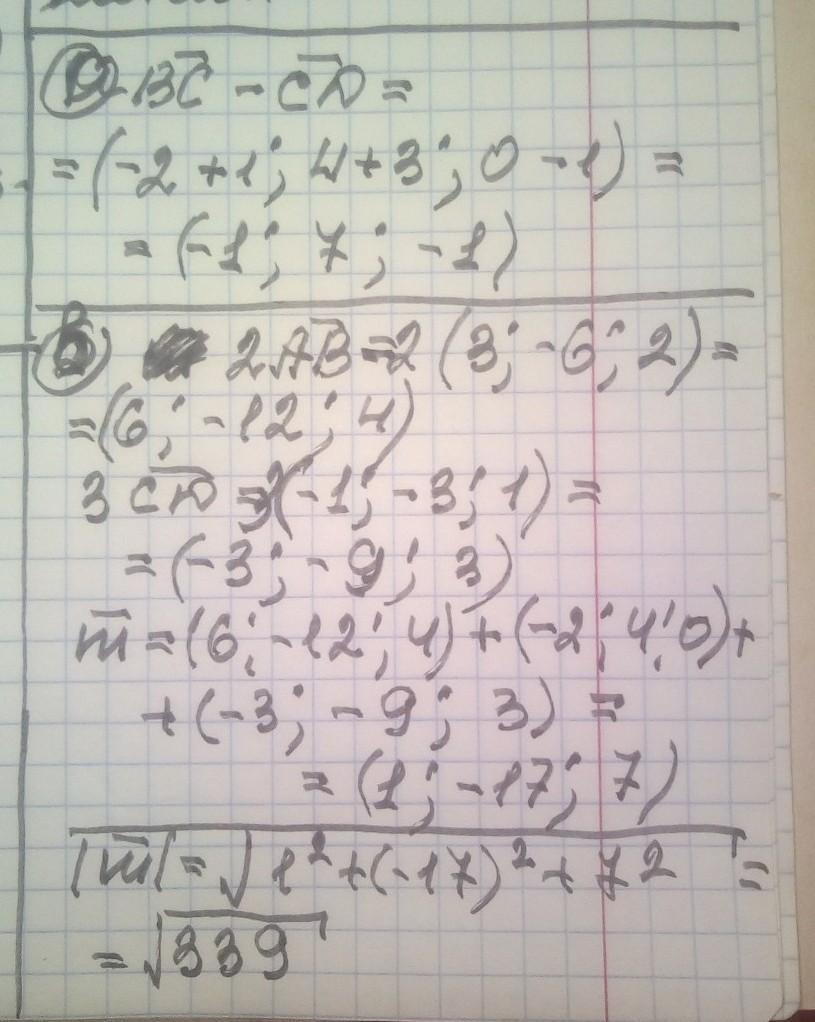 BC - CD =
= (-2 + 1; 4+3; 0 - 1) =
= (-1; 7; -1)
b) 2AB = 2 (3; -6; 2) =
= (6; -12; 4)
3 CD = 3(-1; -3; 1) =
= (-3; -9; 3)
m = (6; -12; 4) + (-2; 4; 0) +
+ (-3; -9; 3) =
= (1; -17; 7)
|m| = √1² + (-17)² + 7² =
= √339